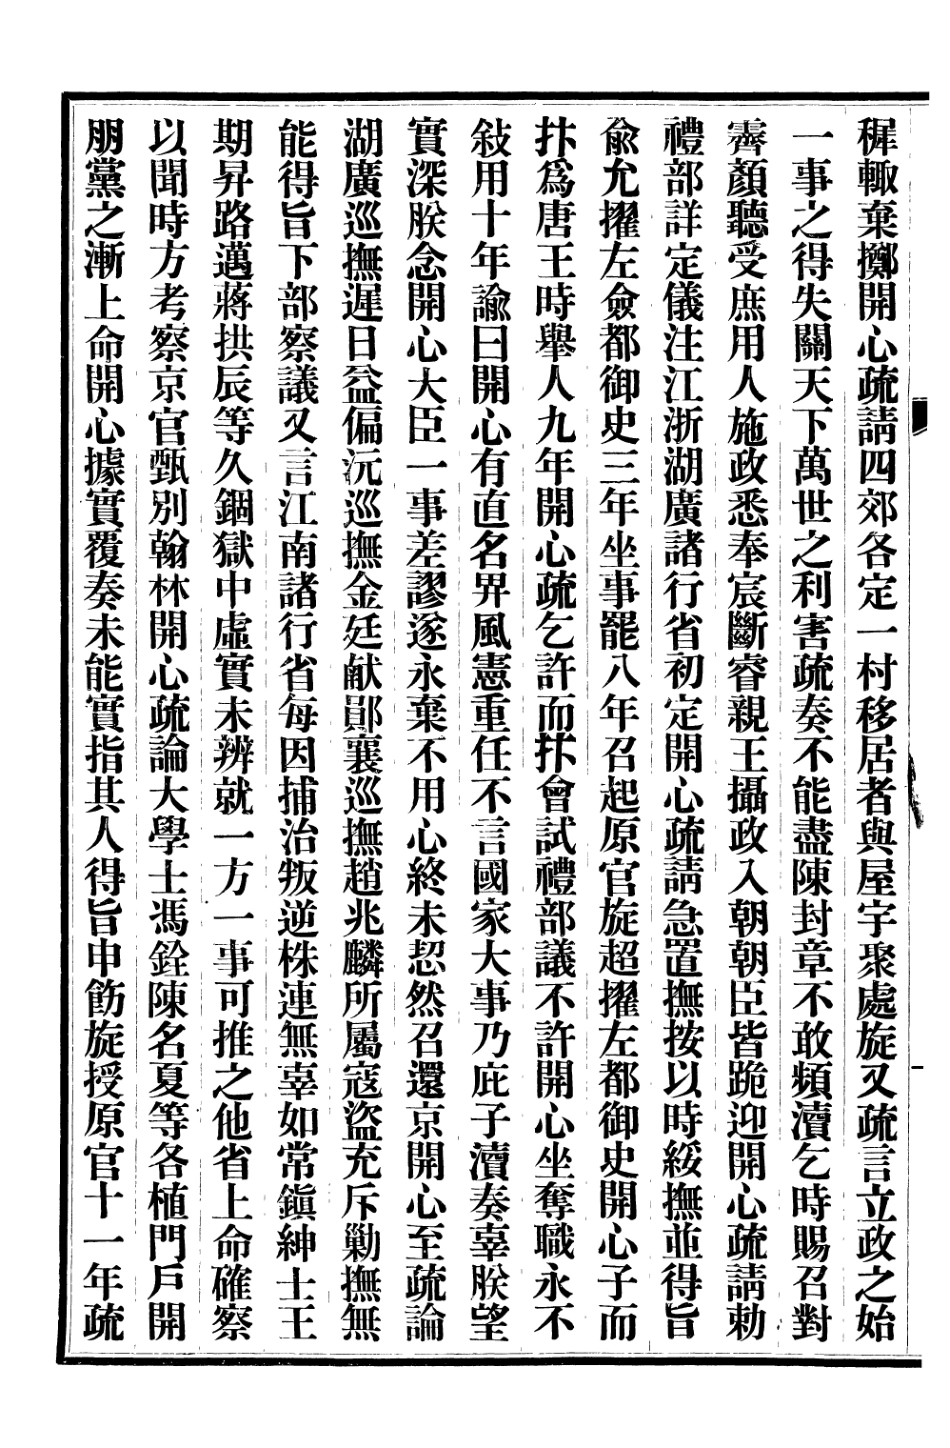 穉輙棄擲開心疏請四郊各定一村移居者與屋宇聚處旋又疏言立政之始
一事之得失關天下萬世之利害疏奏不能盡陳封章不敢頻瀆乞時賜召對
霽顏聽受庶用人施政悉奉宸斷睿親王攝政入朝朝臣皆跪迎開心疏請勅
禮部詳定儀注江浙湖廣諸行省初定開心疏請急置撫按以時綏撫並得旨
兪允擢左僉都御史三年坐事罷八年召起原官旋超擢左都御史開心子而
抃爲唐王時舉人九年開心疏乞許而抃會試禮部議不許開心坐奪職永不
敍用十年諭曰開心有直名畀風憲重任不言國家大事乃庇子瀆奏辜朕望
實深朕念開心大臣一事差謬遂永棄不用心終未恝然召還京開心至疏論
湖廣巡撫遲日益偏沅巡撫金廷献鄖襄巡撫趙兆麟所屬寇盜充斥勦撫無
能得旨下部察議又言江南諸行省每因捕治叛逆株連無辜如常鎭紳士王
期昇路邁蔣拱辰等久錮獄中虛實未辨就一方一事可推之他省上命確察
以聞時方考察京官甄別翰林開心疏論大學士馮銓陳名夏等各植門戶開
朋黨之漸上命開心據實覆奏未能實指其人得旨申飭旋授原官十一年疏